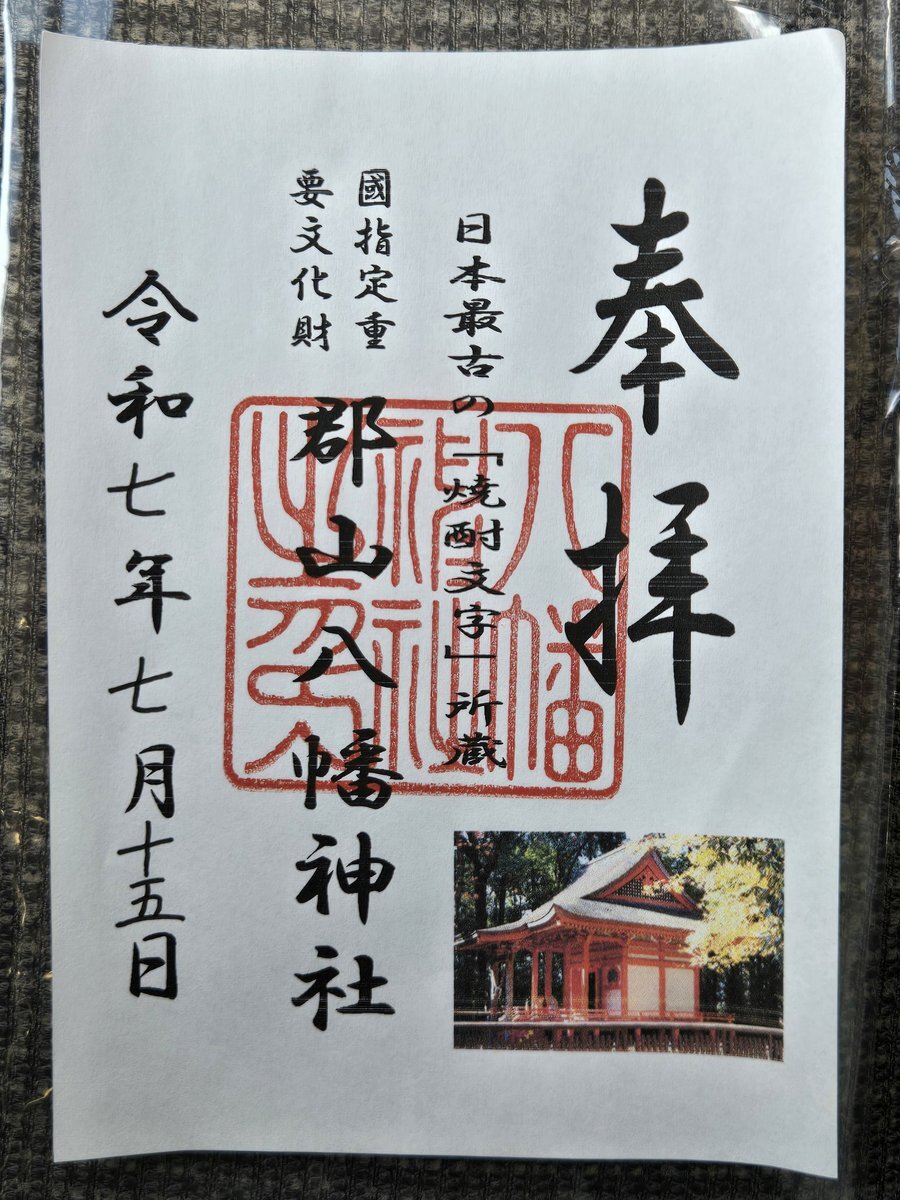 奉拝
日本最古の「焼酎文字」所蔵
國指定重
要文化財
郡山八幡神社
令和七年七月十五日
八幡
神社
之印